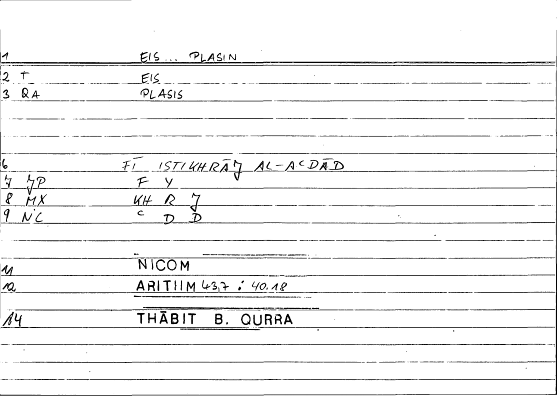 1 EIS ... PLASIN
2 T EIS
3 QA PLASIS
6 FĪ ISTIKHRĀJ AL-ACDĀD
7 JP F Y
8 MX KH R J
9 NC C D D
11 NICOM
12 ARITIIM 43,7 : 40.18
14 THĀBIT B. QURRA